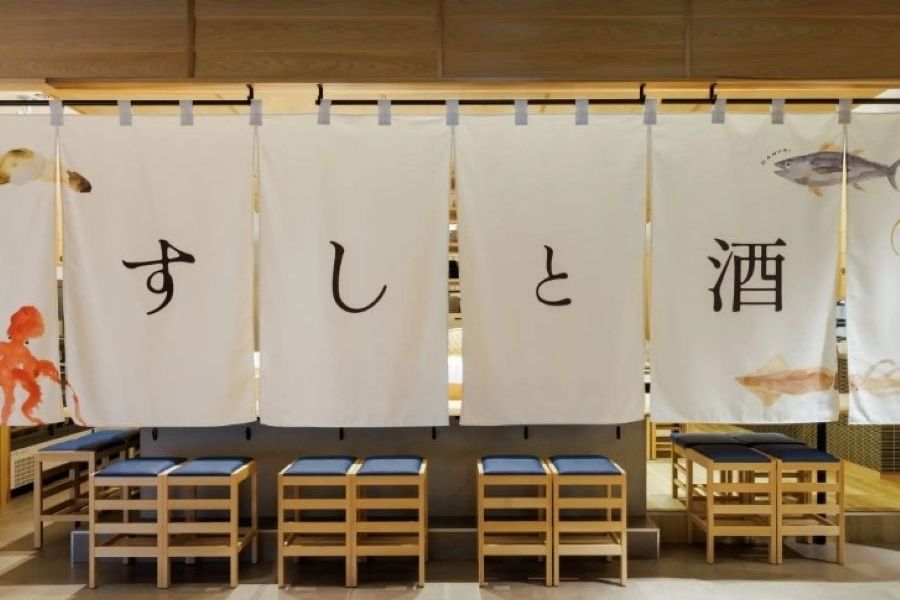 すしと酒